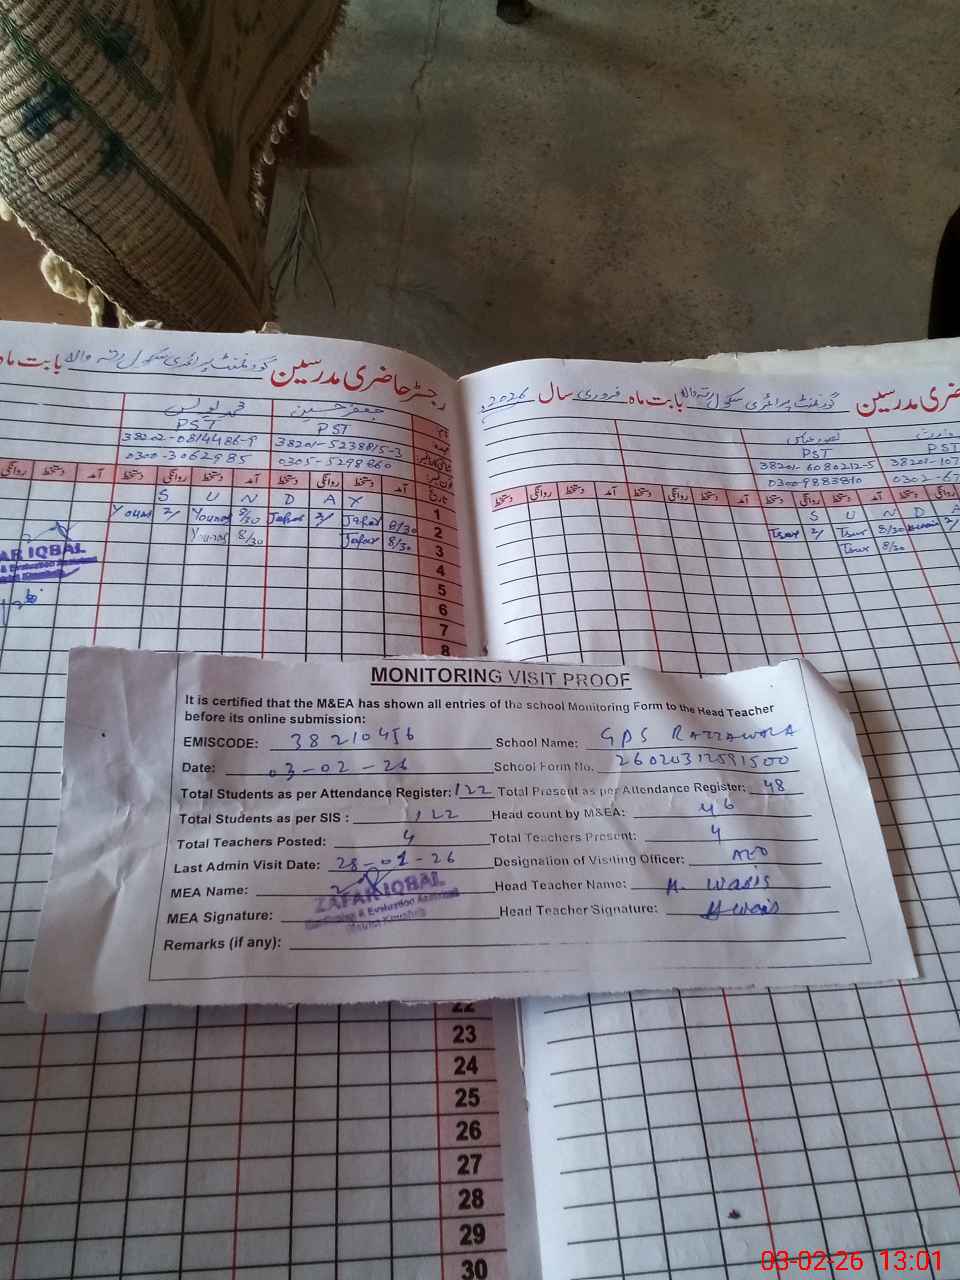 رجسٹر حاضری مدرسین گورنمنٹ پرائمری سکول رتہ والا بابت ماہ
جعفر حسین محمد یونس
PST PST
38201-5238815-3 38202-0814486-9
0305-5298860 0300-3062985
تاریخ آمد دستخط روانگی دستخط آمد دستخط روانگی دستخط آمد دستخط روانگی
S U N D A Y
1
Younus 2/ Younus 8/30 Jafar 2/ Jafar 8/30 2
Younus 8/30 Jafar 8/30 3
4
5
6
7
8
ZAFAR IQBAL
حاضری مدرسین گورنمنٹ پرائمری سکول رتہ والا بابت ماہ فروری سال 2026ء
PST PST
38201-6080212-5 38201-107
0300-9883810 0302-67
آمد دستخط روانگی دستخط آمد دستخط روانگی دستخط آمد دستخط روانگی دستخط
S U N D A
2/ 8/30
8/30
MONITORING VISIT PROOF
It is certified that the M&EA has shown all entries of the school Monitoring Form to the Head Teacher
before its online submission:
EMISCODE: 38210456 School Name: GPS RATTAWALA
Date: 03-02-26 School Form No. 26020312591500
Total Students as per Attendance Register: 122 Total Present as per Attendance Register: 48
Total Students as per SIS : 122 Head count by M&EA: 46
Total Teachers Posted: 4 Total Teachers Present: 4
Last Admin Visit Date: 28-01-26 Designation of Visiting Officer: AEO
MEA Name: ZAFAR IQBAL Head Teacher Name: H. WARIS
Monitoring & Evaluation Assistant
MEA Signature: Head Teacher Signature: H Waris
Remarks (if any):
22
23
24
25
26
27
28
29
30
03-02-26 13:01